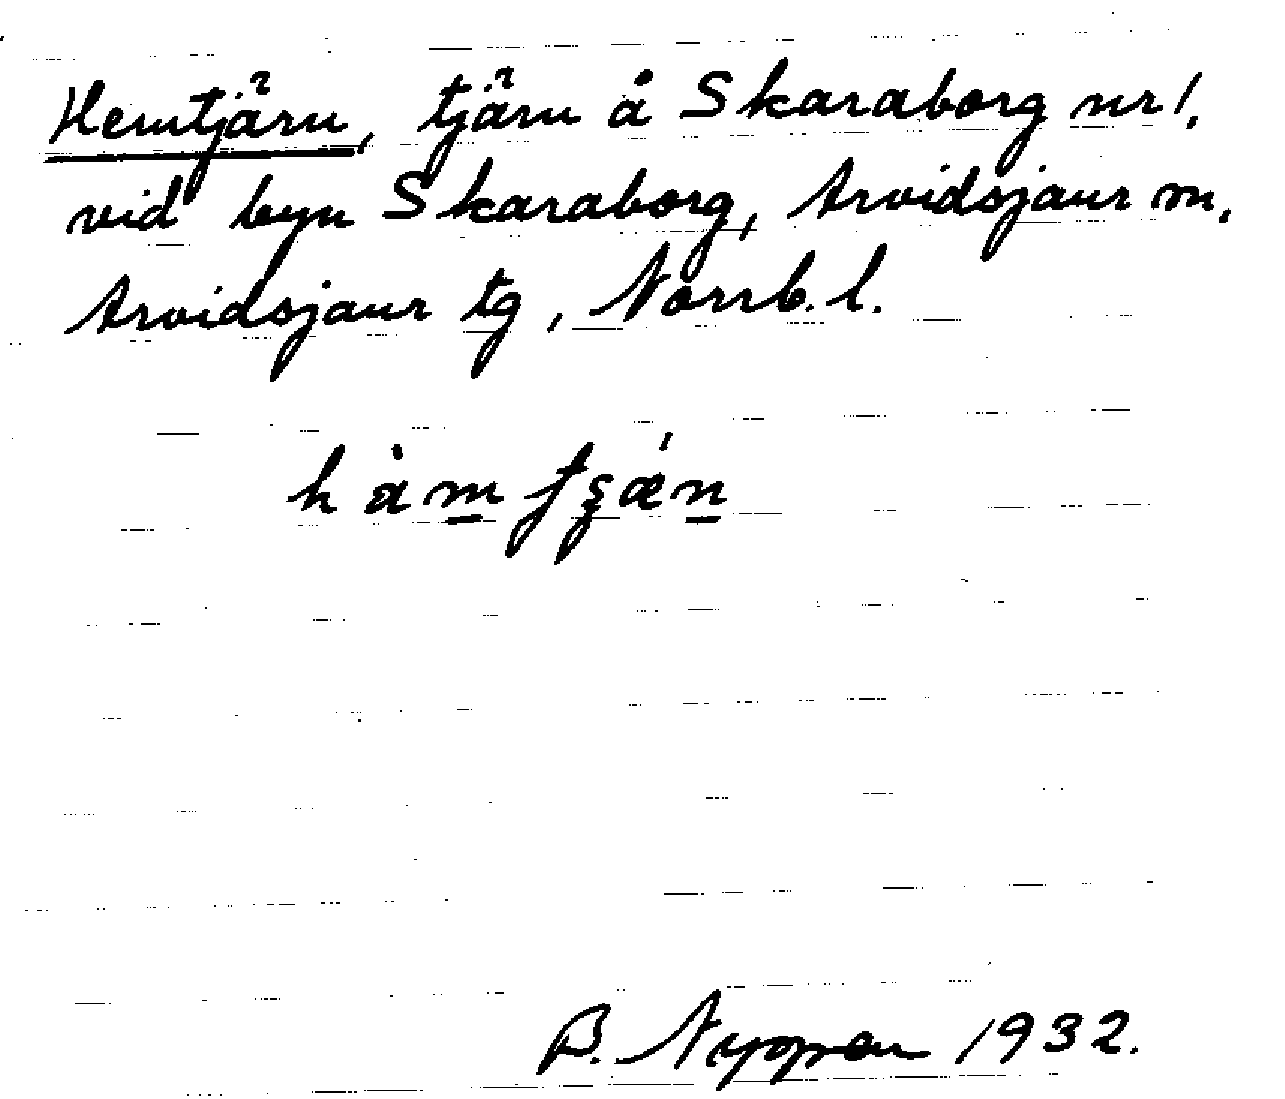 Hemtjärn, tjärn å Skaraborg nr 1,
vid byn Skaraborg, Arvidsjaur sn,
Arvidsjaur tg, Norrb. l.
B. 1932.